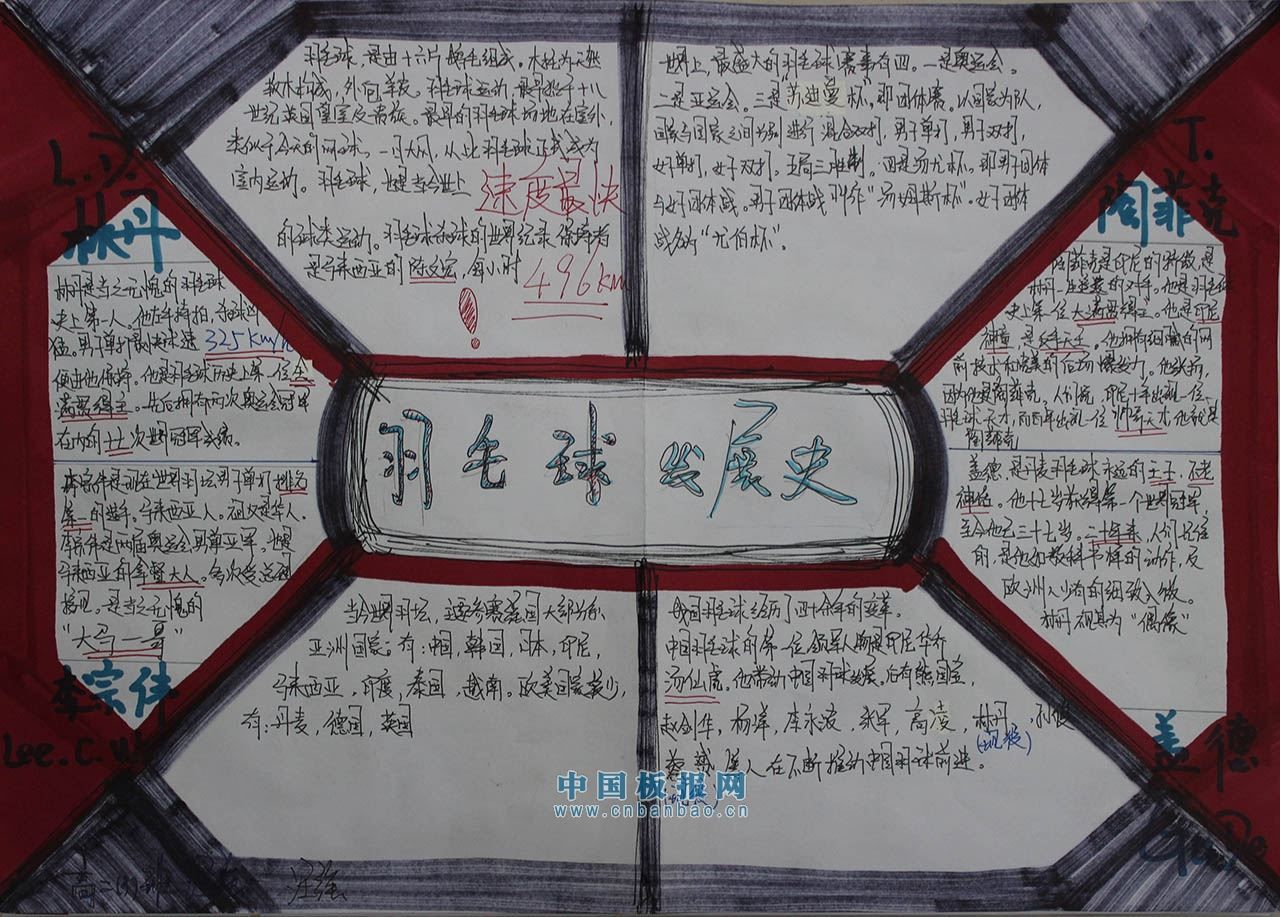 羽毛球，是由十六片鹅毛组成。木托为天然
软木构成，外包羊皮。羽毛球运动，最早起于十八
世纪英国皇室及贵族。最早的羽毛球场地在室外，
类似于今天的网球。一日大风，从此羽毛球正式成为
室内运动。羽毛球，也是当今世上 速度最快
的球类运动。羽毛球杀球的世界纪录保持者
是马来西亚的陈文宏，每小时 496km
！
世界上，最盛大的羽毛球赛事有四。一是奥运会。
二是亚运会。三是苏迪曼杯。即团体赛。以国家为队，
国家与国家之间分别进行混合双打，男子单打，男子双打，
女子单打，女子双打，五局三胜制。四是汤尤杯。即男子团体
与女子团体战。男子团体战叫作“汤姆斯杯”。女子团体
战名为“尤伯杯”。
L.D.
林丹
林丹是当之无愧的羽毛球
史上第一人。他左手持拍，杀球凶
猛。男子单打最快球速 325km/h
便由他保持。他是羽毛球历史上第一位全
满贯得主。先后拥有两次奥运会冠军
在内的十七次世界冠军头衔。
李宗伟是现在世界羽坛男子单打排名
第一的选手。马来西亚人。祖父是华人。
李宗伟是两届奥运会男单亚军。也是
马来西亚的拿督大人。多次受总理
接见。是当之无愧的
“大马一哥”
李宗伟
Lee.C.W.
羽毛球发展史
T.
陶菲克
陶菲克是印尼的骄傲，是
林丹一生最爱的对手。他是羽毛球
史上第一位大满贯得主。他是印尼
神童，是反手天王。他拥有细腻的网
前技术和完美的后场爆发力。他张扬，
因为他是陶菲克。人们说，印尼十年出现一位
羽毛球天才，而百年出现一位帅哥天才，他就是
陶菲克
盖德，是丹麦羽毛球永远的王子，不老
神话。他十七岁获得第一个世界冠军，
至今他已三十七岁。二十年来，人们记住
的，是他如教科书样的动作，及
欧洲人少有的细致入微。
林丹视其为“偶像”
盖德
当今世界羽坛，这参赛强国大部分为
亚洲国家：有：中国，韩国，日本，印尼，
马来西亚，印度，泰国，越南。欧美国家较少，
有：丹麦，德国，英国
我国羽毛球经历了四十余年的变革。
中国羽毛球的第一位领军人物是印尼华侨
汤仙虎。他带动中国羽球发展。后有熊国宝，
赵剑华，杨洋，李永波，张军，高凌，林丹，孙俊
(现役)
蔡赟 等人在不断推动中国羽球前进。
(现役)
中国板报网
www.cnbanbao.cn
高二(3)班